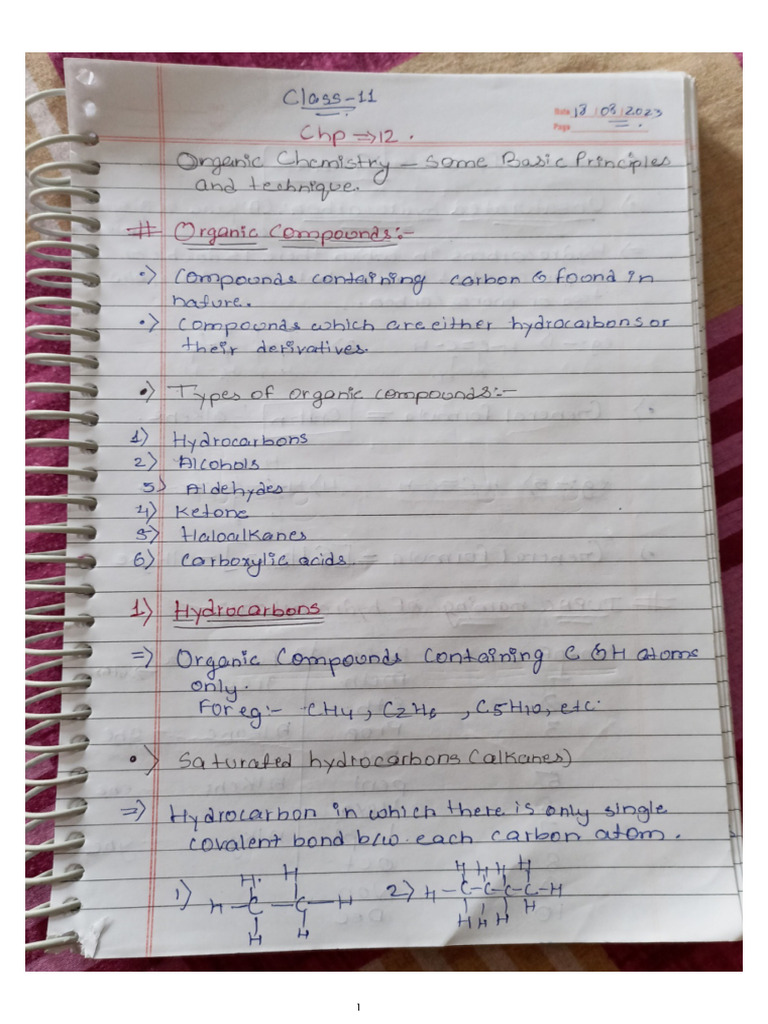 Class-11
Date 18/08/2023
Page
Chp ⇒ 12.
Organic Chemistry - Some Basic Principles
and technique.
# Organic Compounds:-
•> Compounds containing carbon & found in
nature.
•> Compounds which are either hydrocarbons or
their derivatives.
•> Types of organic compounds:-
1> Hydrocarbons
2> Alcohols
3> Aldehydes
4> Ketone
5> Haloalkanes
6> Carboxylic acids.
1> Hydrocarbons
=> Organic Compounds Containing C & H atoms
only.
For eg:- CH4, C2H6, C5H10, etc.
•> Saturated hydrocarbons (alkanes)
=> Hydrocarbon in which there is only single
covalent bond b/w. each carbon atom.
H H H H H H
1> H-C-C-H 2> H-C-C-C-C-H
H H H H H H
1